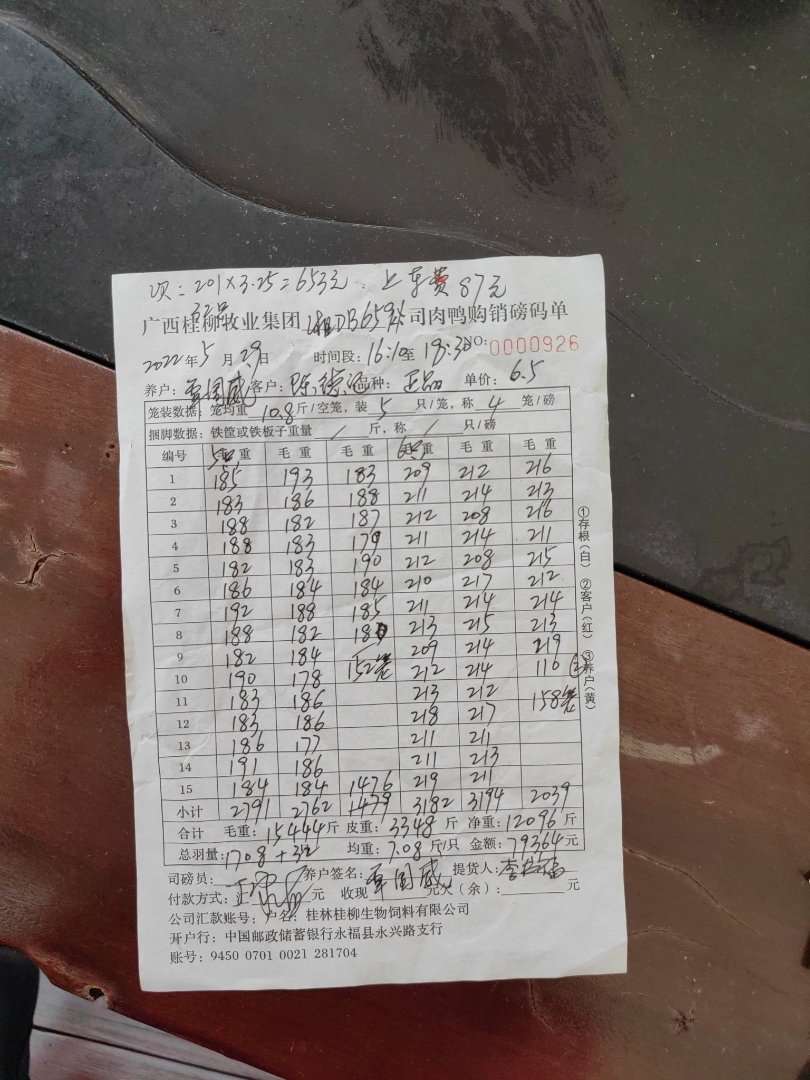 次=201×3.25=653元 上车费87元
广西桂柳牧业集团 公司肉鸭购销磅码单
2022年5月29日 时间段:16:10至18:30 NO:0000926
养户:覃国威 客户: 品种:正品 单价:6.5
笼装数据:笼均重 10.8 斤/空笼,装 5 只/笼,称 4 笼/磅
捆脚数据:铁筐或铁板子重量 / 斤,称 / 只/磅
编号 毛重 毛重 毛重 毛重 毛重 毛重
1 185 193 183 209 212 216
2 183 186 188 211 214 213
3 188 182 187 212 208 216
4 188 183 179 211 214 211
5 182 183 190 212 208 215
6 186 184 184 210 217 212
7 192 188 185 211 214 214
8 188 182 213 215 213
9 182 184 152笼 209 214 219
10 190 178 212 214 110
11 183 186 213 212 158笼
12 183 186 218 217
13 186 177 211 211
14 191 186 211 213
15 184 184 1476 219 211
小计 2791 2762 1479 3182 3194 2039
合计 毛重:15444斤 皮重:3348斤 净重:12096斤
总羽量:1708+32 均重:7.08斤/只 金额:79364元
司磅员: 养户签名:覃国威 提货人:
付款方式: 元 收现 元欠(余): 元
公司汇款账号:户名:桂林桂柳生物饲料有限公司
开户行:中国邮政储蓄银行永福县永兴路支行
账号:9450 0701 0021 281704
①存根(白) ②客户(红) ③养户(黄)